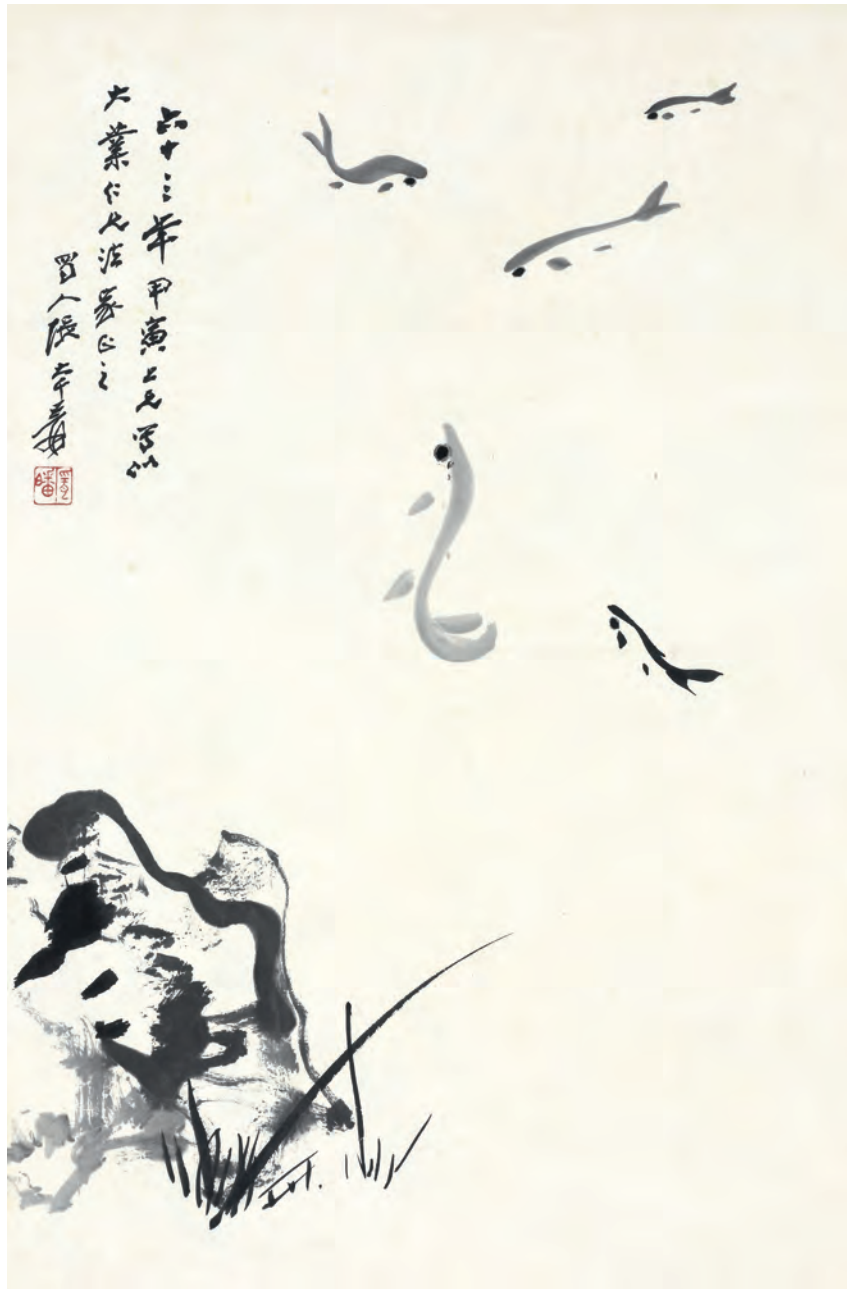 六十三年甲寅上元寫似
大業仁兄法家正之
蜀人張大千爰